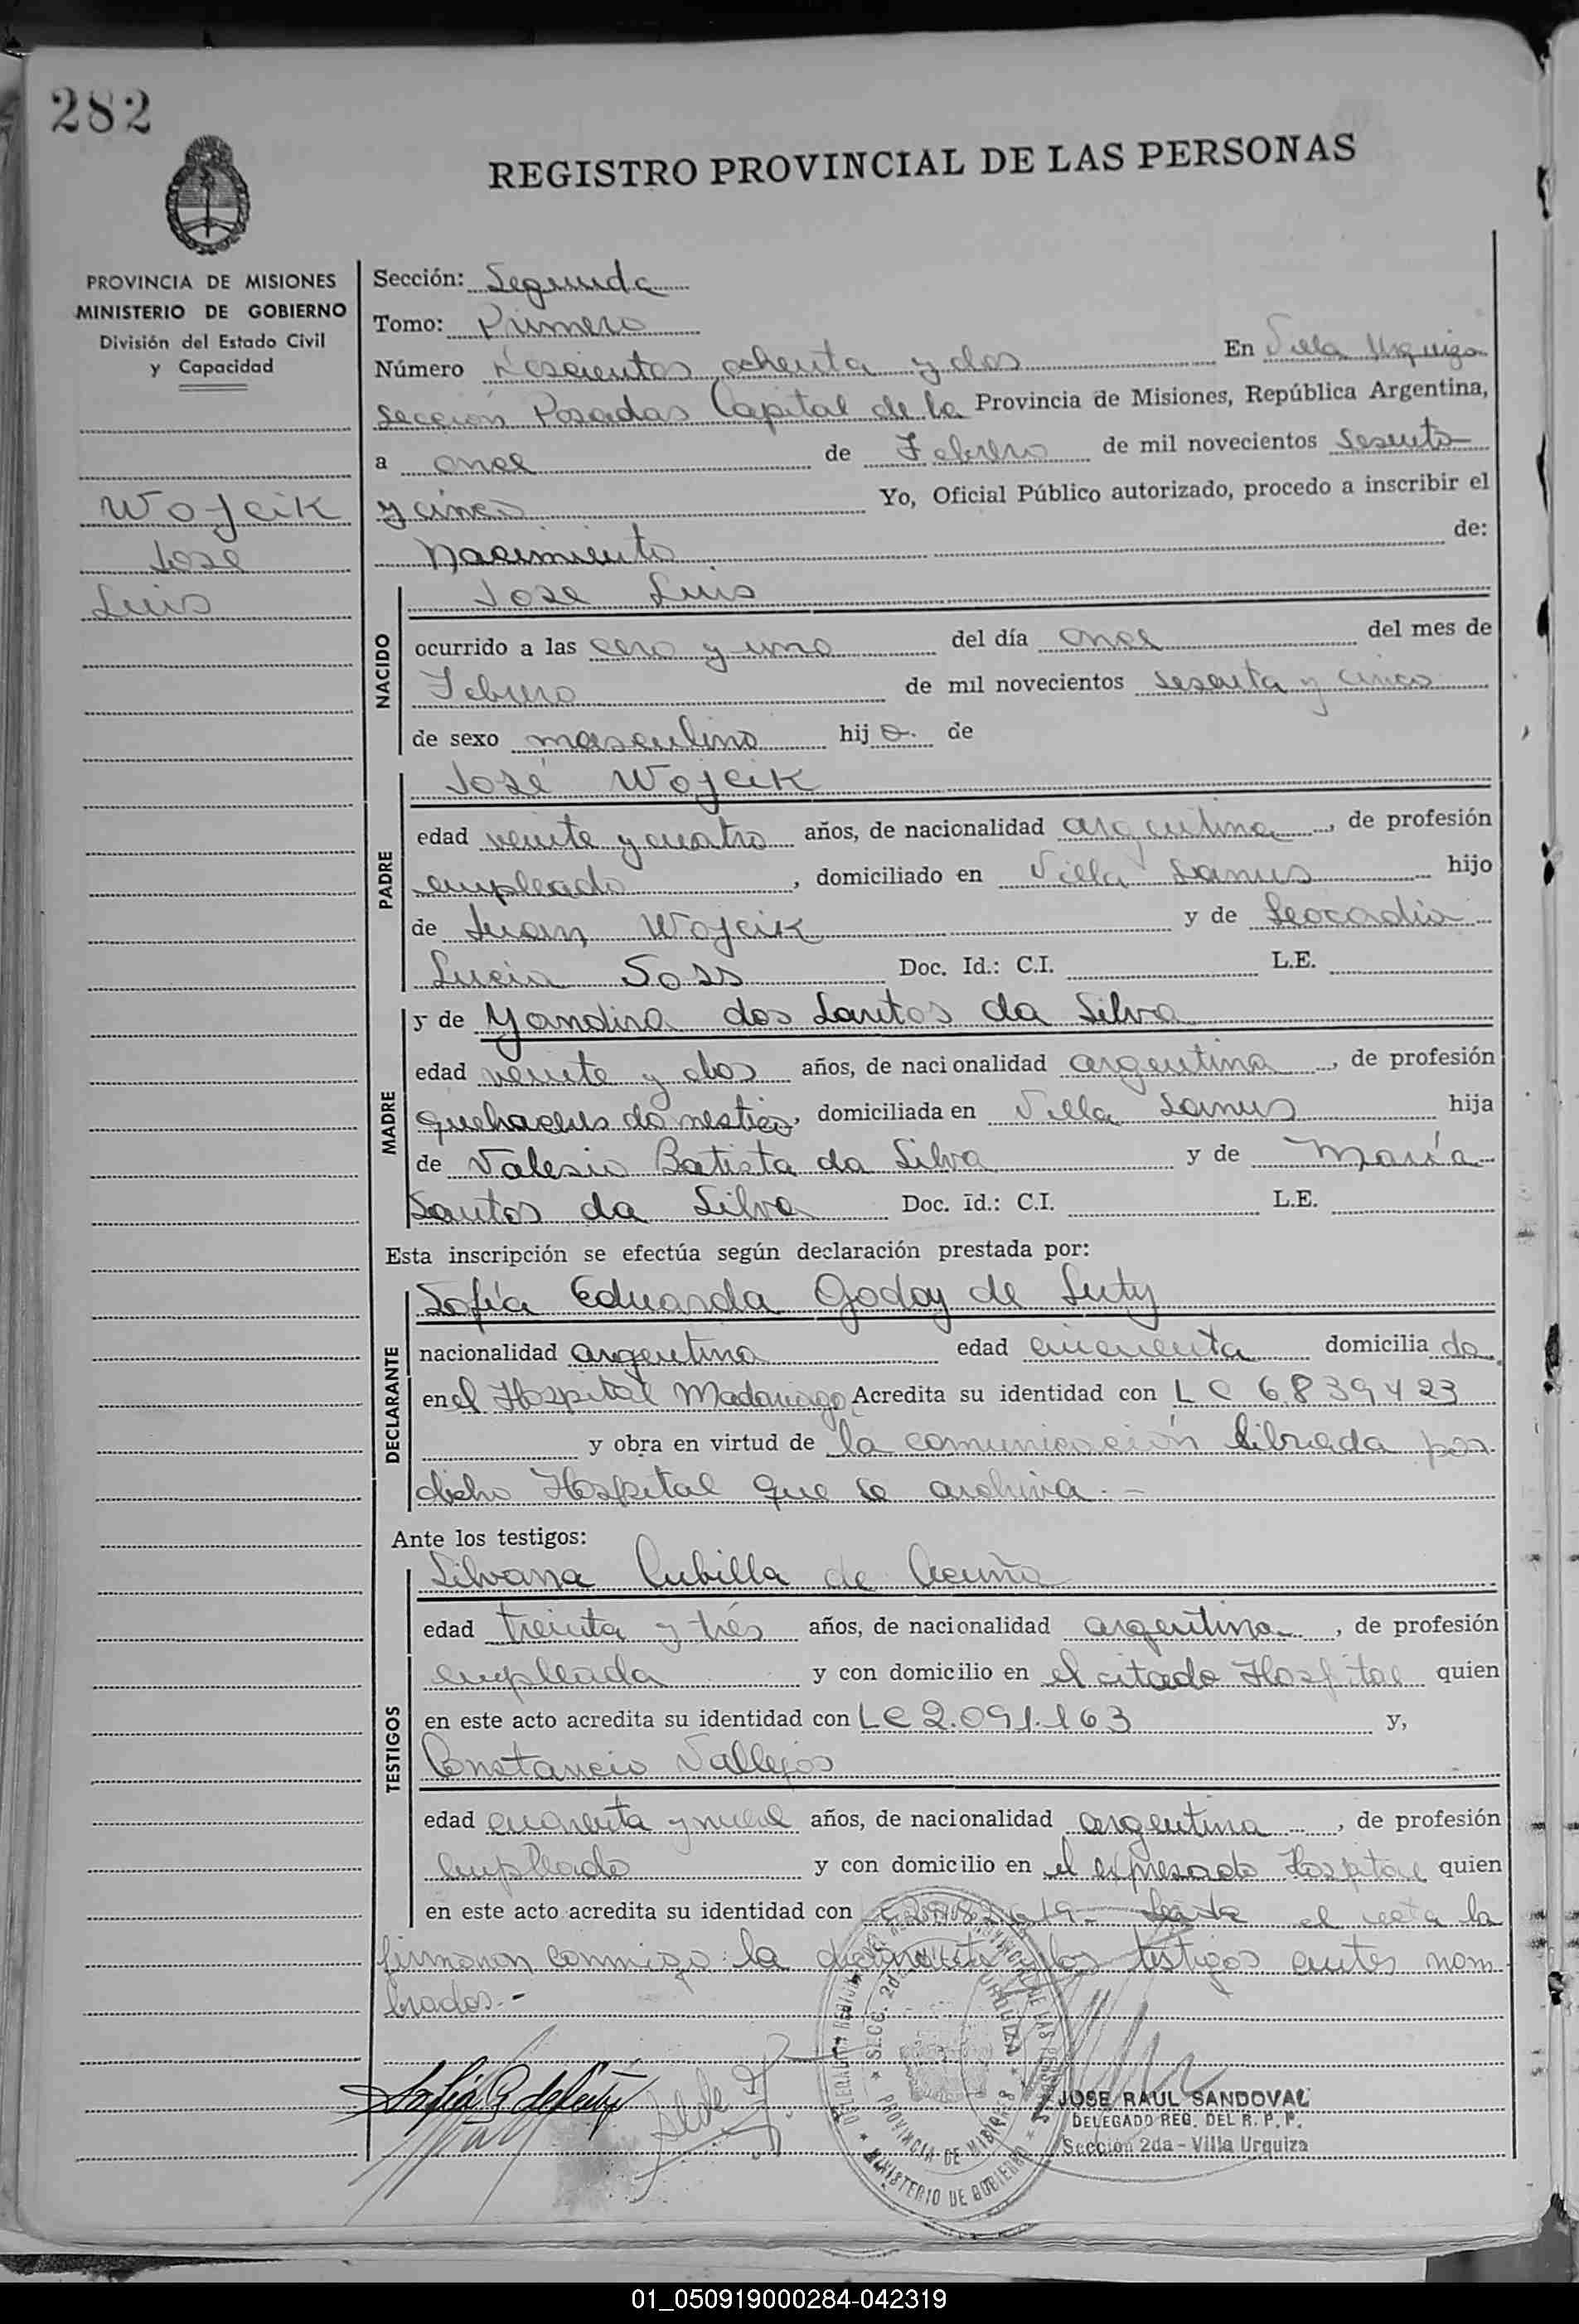 282
REGISTRO PROVINCIAL DE LAS PERSONAS
PROVINCIA DE MISIONES
MINISTERIO DE GOBIERNO
División del Estado Civil
y Capacidad
Wojcik
Jose
Luis
Sección: Segunda
Tomo: Primero
Número Doscientos ochenta y dos En Villa Urquiza
sección Posadas Capital de la Provincia de Misiones, República Argentina,
a once de Febrero de mil novecientos sesenta
y cinco Yo, Oficial Público autorizado, procedo a inscribir el
Nacimiento de:
NACIDO
Jose Luis
ocurrido a las cero y una del día once del mes de
Febrero de mil novecientos sesenta y cinco
de sexo masculino hijo de
PADRE
José Wojcik
edad veinte y cuatro años, de nacionalidad argentina, de profesión
empleado, domiciliado en Villa Lanus hijo
de Juan Wojcik y de Leocadia
Lucia Soss Doc. Id.: C.I. L.E.
MADRE
y de Yandira dos Santos da Silva
edad veinte y dos años, de nacionalidad argentina, de profesión
quehaceres domestico, domiciliada en Villa Lanus hija
de Valesio Batista da Silva y de María
Santos da Silva Doc. Id.: C.I. L.E.
Esta inscripción se efectúa según declaración prestada por:
DECLARANTE
Sofía Eduarda Godoy de Luty
nacionalidad argentina edad cincuenta domiciliada
en el Hospital Madariaga Acredita su identidad con L C 6.839423
y obra en virtud de la comunicación librada por
dicho Hospital que se archiva.-
Ante los testigos:
TESTIGOS
Silvana Cubilla de Acuña
edad treinta y trés años, de nacionalidad argentina, de profesión
empleada y con domicilio en el citado Hospital quien
en este acto acredita su identidad con LC 2.091.163 y,
Constancio Vallejos
edad cuarenta y nueve años, de nacionalidad argentina, de profesión
empleado y con domicilio en el expresado Hospital quien
en este acto acredita su identidad con el acta la
firmaron conmigo la declarante y los testigos antes nom
brados.-
DELEGACION REGISTRO PROVINCIAL DE LAS PERSONAS
SECC. 2da URQUIZA
PROVINCIA DE MISIONES
MINISTERIO DE GOBIERNO
JOSE RAUL SANDOVAL
DELEGADO REG. DEL R. P. P.
Sección 2da - Villa Urquiza
01_050919000284-042319